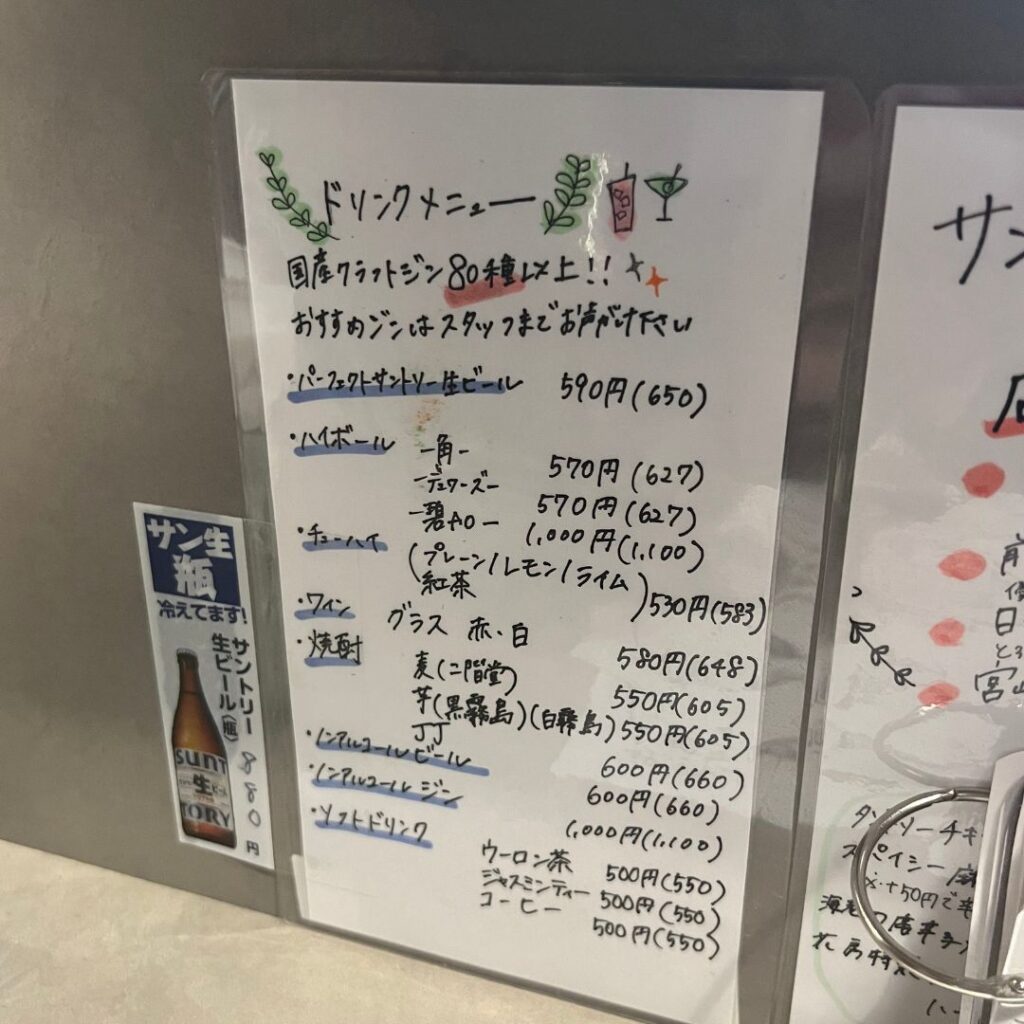 ドリンクメニュー
国産クラフトジン80種以上!!
おすすめジンはスタッフまでお声がけ下さい
・パーフェクトサントリー生ビール 590円(650)
・ハイボール
-角- 570円(627)
-デュワーズ- 570円(627)
-碧AO- 1,000円(1,100)
・チューハイ
(プレーン/レモン/ライム
紅茶) 530円(583)
・ワイン グラス 赤・白 580円(648)
・焼酎
麦(二階堂) 550円(605)
芋(黒霧島)(白霧島) 550円(605)
JJ 600円(660)
・ノンアルコールビール 600円(660)
・ノンアルコールジン 1,000円(1,100)
・ソフトドリンク
ウーロン茶 500円(550)
ジャスミンティー 500円(550)
コーヒー 500円(550)
サン生
瓶
冷えてます!
サントリー
生ビール(瓶) 880円
SUNT
生
TORY
サン
前
日
宮
スパイシー
※+50円で